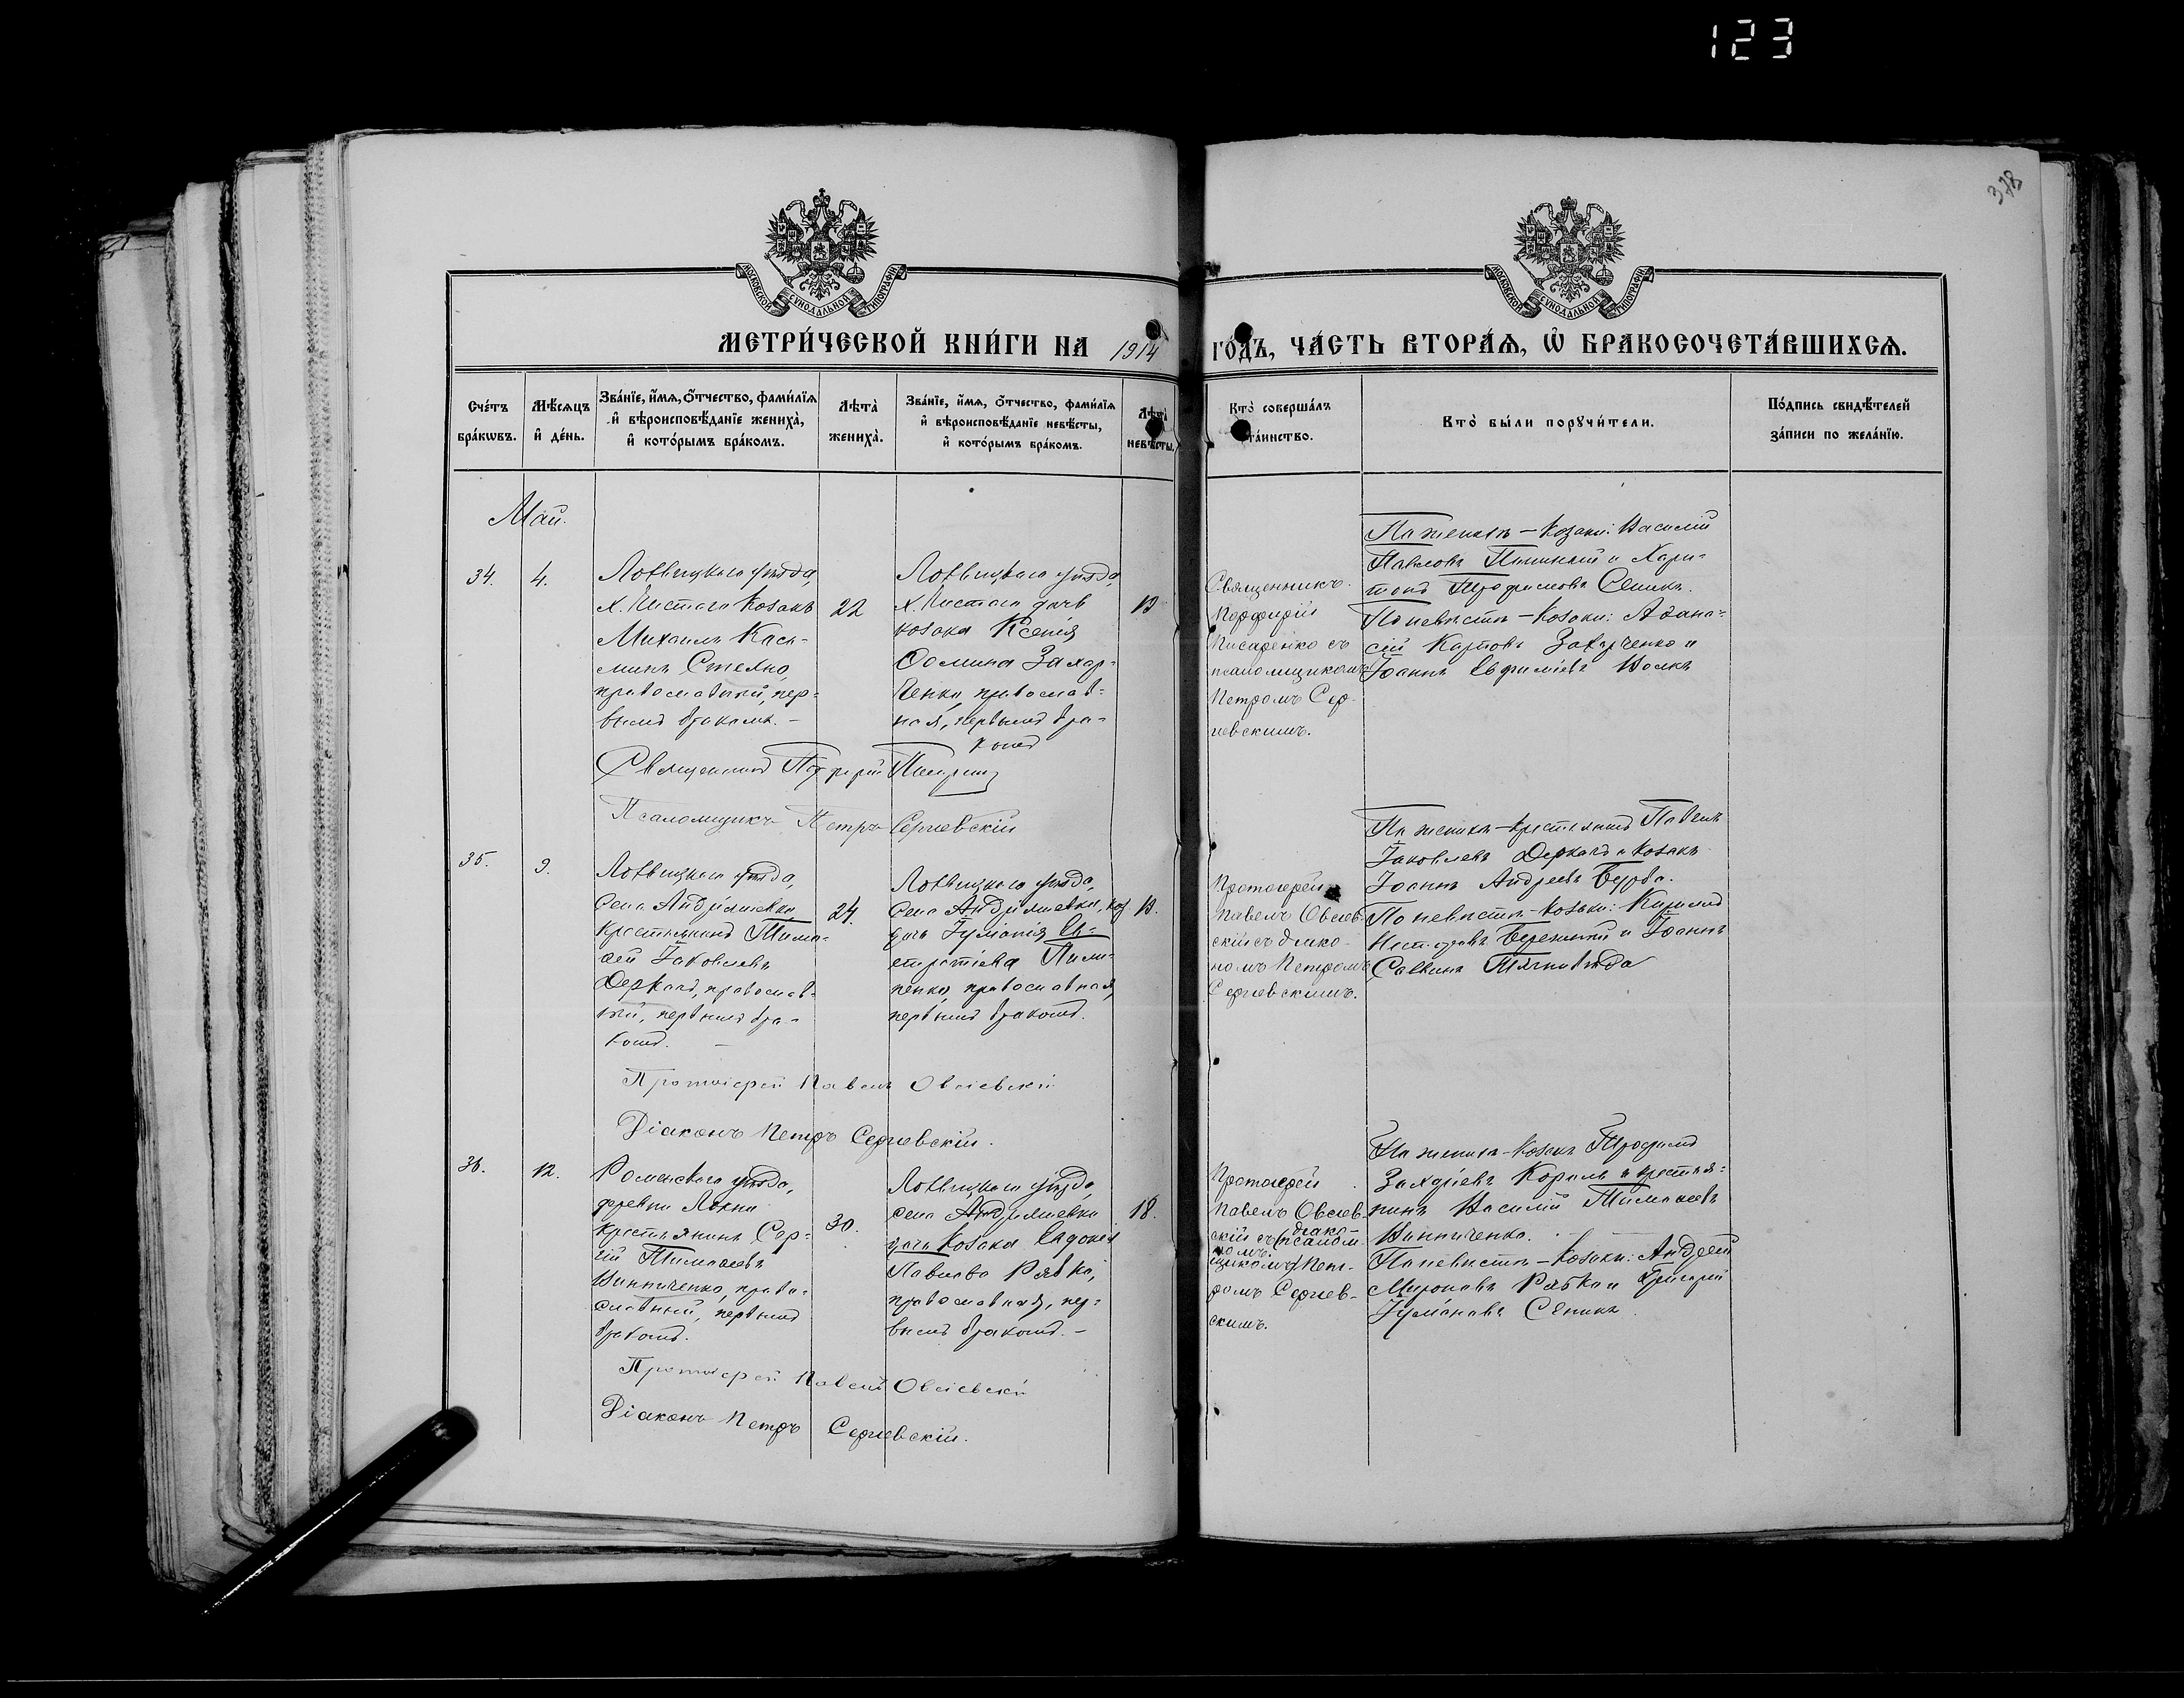 123
378
МОСКОВСКОЙ СѴНОДАЛЬНОЙ ТИПОГРАФІИ
МОСКОВСКОЙ СѴНОДАЛЬНОЙ ТИПОГРАФІИ
МЕТРИ́ЧЕСКОЙ КНИ́ГИ НА 1914 ГО́ДЪ, ЧА́СТЬ ВТОРА́Я, Ѽ БРАКОСОЧЕТА́ВШИХСѦ.
Сче́тъ бра́кѡвъ.
Мѣ́сяцъ и҆ де́нь.
Зва́нїе, и҆́мѧ, ѻ҆́тчество, фами́лїѧ
и҆ вѣроисповѣ́данїе жениха̀,
и҆ кото́рымъ бра́комъ.
Лѣта̀ жениха̀.
Зва́нїе, и҆́мѧ, ѻ҆́тчество, фами́лїѧ
и҆ вѣроисповѣ́данїе невѣ́сты,
и҆ кото́рымъ бра́комъ.
Лѣта̀ невѣ́сты.
Кто̀ соверша́лъ
та́инство.
Кто̀ бы́ли порꙋчи́тели.
По́дпись свидѣ́телей
за́писи по жела́нїю.
Май.
34.
4.
Лохвицкаго уѣзда,
х. Чистаго козакъ
Михаилъ Кась-
минъ Стеяно,
православный, пер-
вымъ бракомъ. -
22
Лохвицкаго уѣзда,
х. Чистаго дочь
козака Ксенія
Ѳомина Захар-
ченко, православ-
ная, первымъ бра-
комъ
19
Священникъ
Порфирій
Писаренко съ
псаломщикомъ
Петромъ Сер-
гіевскимъ.
По женихѣ - козаки: Василій
Павловъ и Хари-
тонъ Трофимовъ Сеникъ.
По невѣстѣ - козаки: Аѳана-
сій Карповъ Захарченко и
Іоаннъ Евфиміевъ Волкъ
Священникъ Порфирій Писаренко
Псаломщикъ Петръ Сергіевскій
35.
9.
Лохвицкаго уѣзда,
села Андріяшевки
крестьянинъ Тимо-
ѳей Іаковлевъ
Деркачъ, православ-
ный, первымъ бра-
комъ. -
24.
Лохвицкаго уѣзда,
села Андріяшевки, коз.
дочь Іуліанія Ев-
стратіева Пили-
пенко, православная,
первымъ бракомъ.
19.
Протоіерей
Павелъ Овсіев-
скій съ діако-
номъ Петромъ
Сергіевскимъ.
По женихѣ - крестьянинъ Павелъ
Іаковлевъ Деркачъ и козакъ
Іоаннъ Андреевъ Бурба.
По невѣстѣ - козаки: Кириллъ
Несторовъ Бережный и Іоаннъ
Саввинъ
Протоіерей Павелъ Овсіевскій
Діаконъ Петръ Сергіевскій.
36.
12.
Роменскаго уѣзда,
деревни Локни
крестьянинъ Сер-
гій Тимоѳеевъ
Винниченко, право-
славный, первымъ
бракомъ.
30.
Лохвицкаго уѣзда,
села Андріяшевки
дочь козака Евдокія
Павлова Рябко,
православная, пер-
вымъ бракомъ. -
18.
Протоіерей
Павелъ Овсіев-
скій съ (псалом-
діако-
номъ.
щикомъ) Пет-
ромъ Сергіев-
скимъ.
По женихѣ - козакъ Трофимъ
Захаріевъ Король и крестья-
нинъ Василій Тимоѳеевъ
Винниченко.
По невѣстѣ - козаки: Андрей
Мироновъ Рябко и Григорій
Іуліановъ Сеникъ.
Протоіерей Павелъ Овсіевскій
Діаконъ Петръ Сергіевскій.